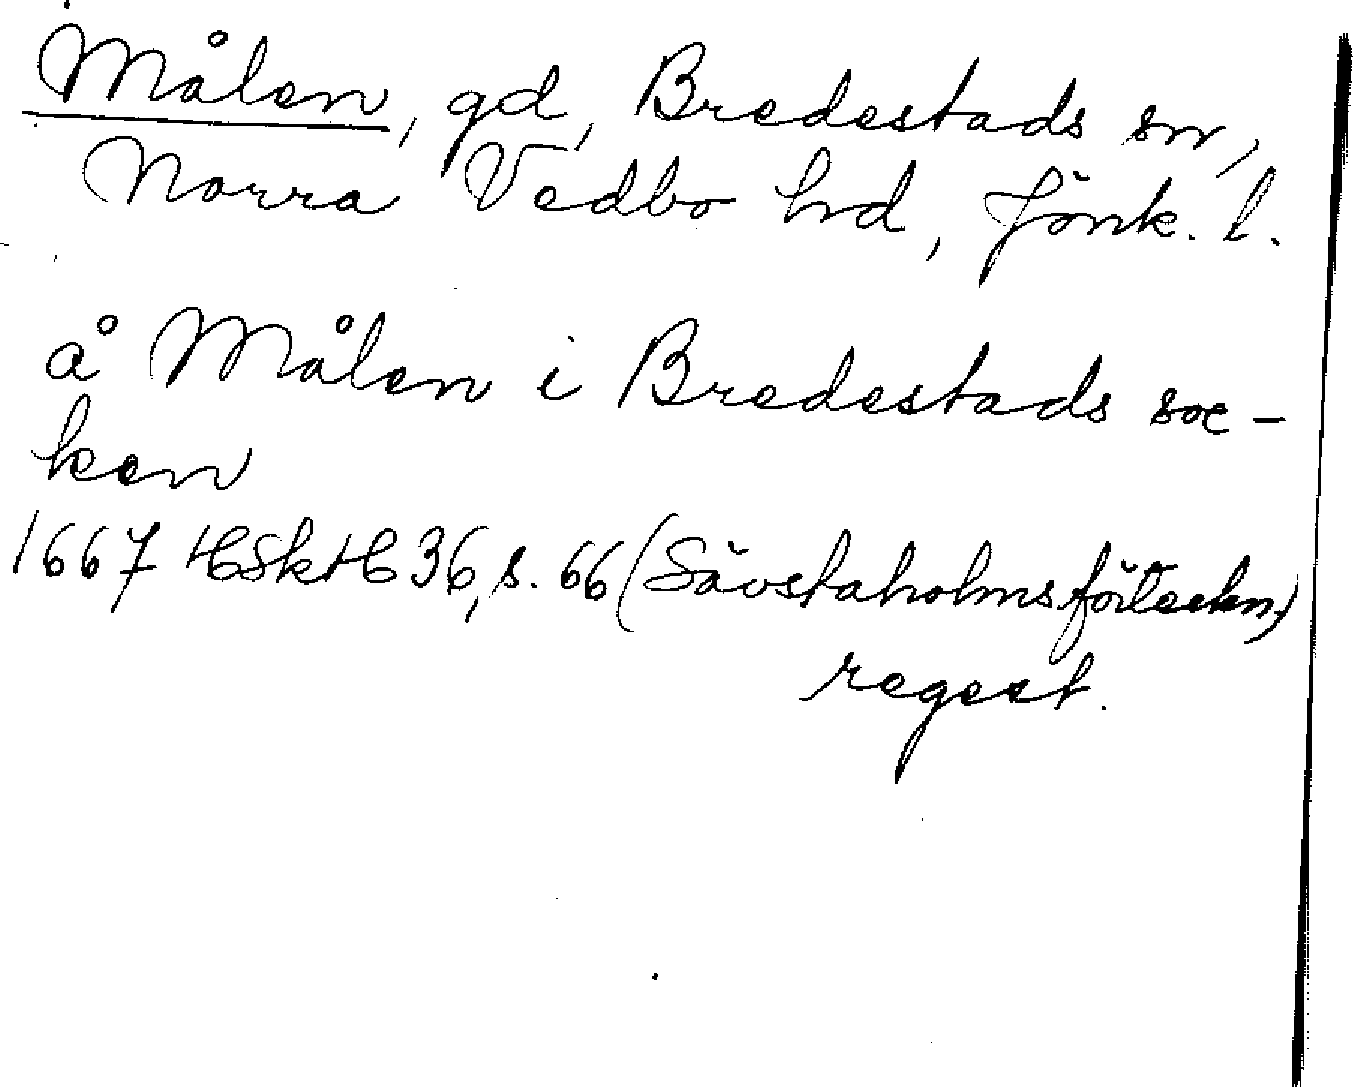 Målen, gd, Bredestads sn,
Norra Vedbo hd, Jönk. l.
å Målen i Bredestads soc-
ken
1667 HSkH 36, s. 66 (Sävstaholmsförteckn.)
regest.